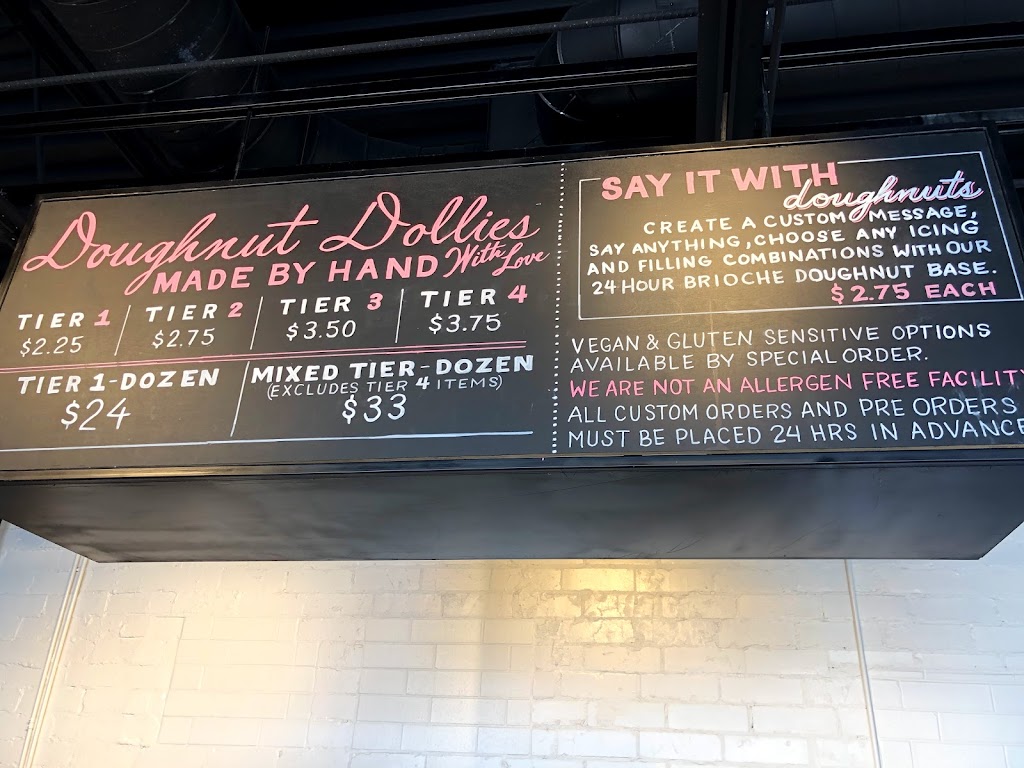 Doughnut Dollies
MADE BY HAND With Love
TIER 1
$2.25
TIER 2
$2.75
TIER 3
$3.50
TIER 4
$3.75
TIER 1-DOZEN
$24
MIXED TIER-DOZEN
(EXCLUDES TIER 4 ITEMS)
$33
SAY IT WITH
doughnuts
CREATE A CUSTOM MESSAGE,
SAY ANYTHING, CHOOSE ANY ICING
AND FILLING COMBINATIONS WITH OUR
24 HOUR BRIOCHE DOUGHNUT BASE.
$2.75 EACH
VEGAN & GLUTEN SENSITIVE OPTIONS
AVAILABLE BY SPECIAL ORDER.
WE ARE NOT AN ALLERGEN FREE FACILITY
ALL CUSTOM ORDERS AND PRE ORDERS
MUST BE PLACED 24 HRS IN ADVANCE